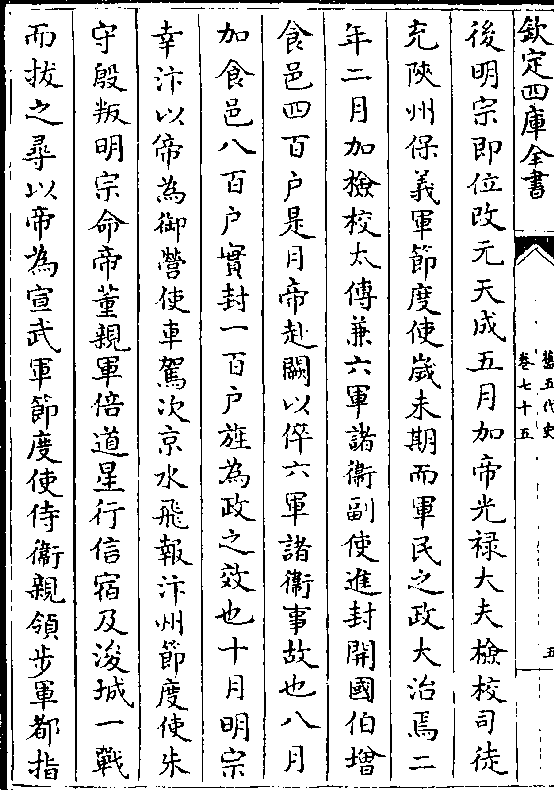 欽定四庫全書
舊五代史
卷七十五
五
後明宗即位改元天成五月加帝光禄大夫檢校司徒
充陜州保義軍節度使嵗未期而軍民之政大治焉二
年二月加檢校太傅兼六軍諸衞副使進封開國伯增
食邑四百户是月帝赴闕以倅六軍諸衞事故也八月
加食邑八百户實封一百户旌為政之效也十月明宗
幸汴以帝為御營使車駕次京水飛報汴州節度使朱
守殷叛明宗命帝董親軍倍道星行信宿及浚城一戰
而拔之尋以帝為宣武軍節度使侍衞親領步軍都指